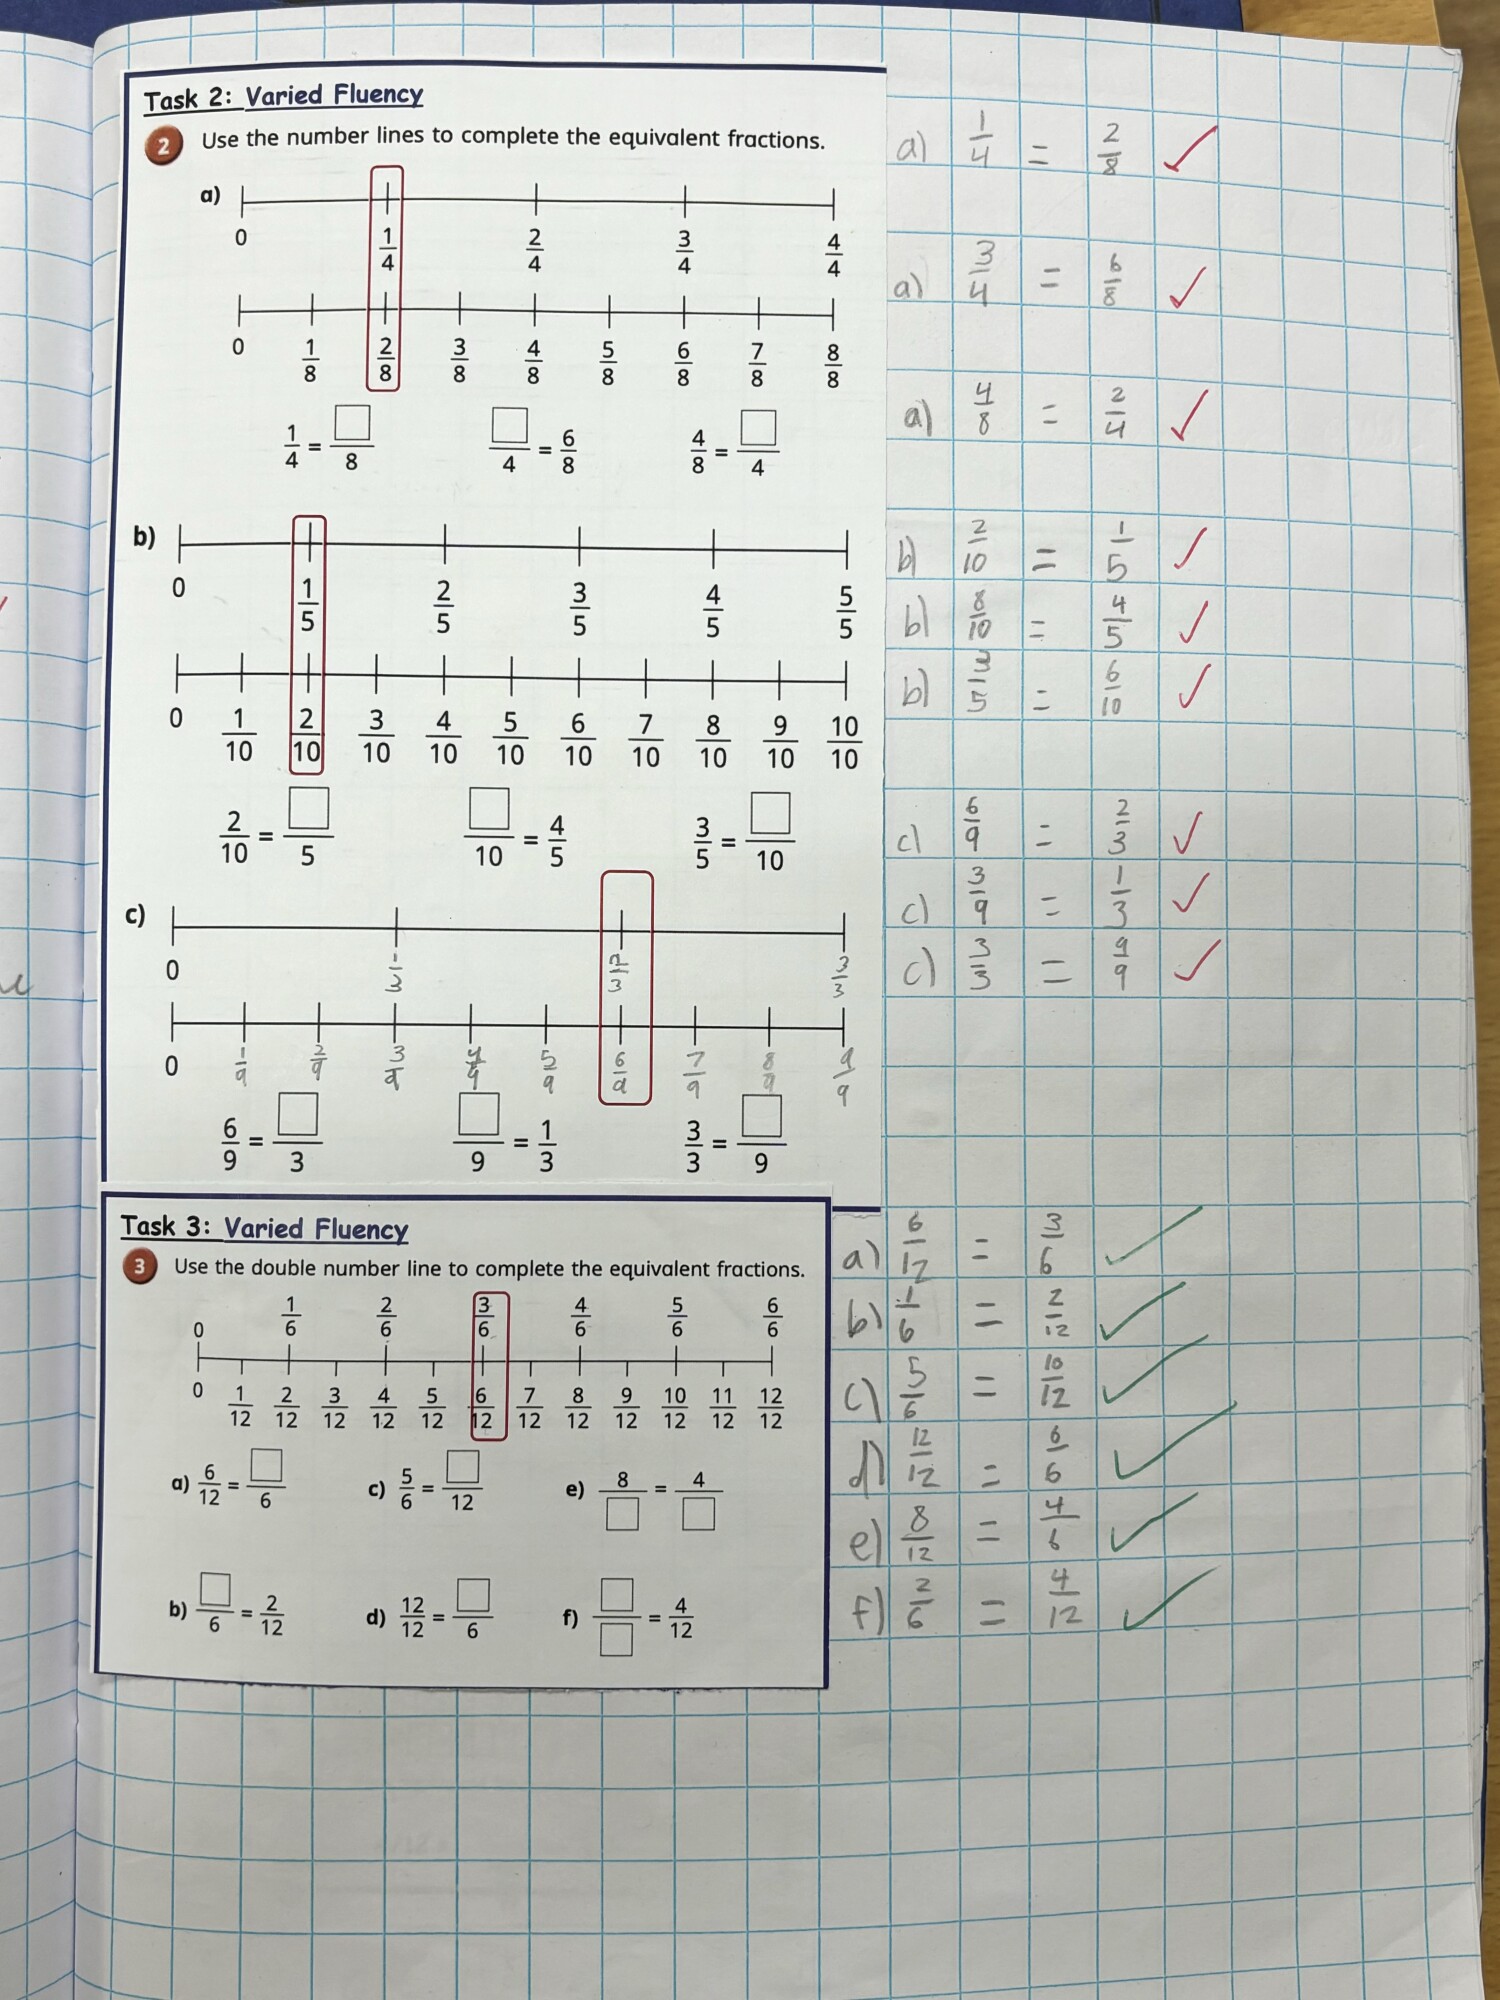 Task 2: Varied Fluency
2 Use the number lines to complete the equivalent fractions.
a)
0 1/4 2/4 3/4 4/4
0 1/8 2/8 3/8 4/8 5/8 6/8 7/8 8/8
1/4 = □/8 □/4 = 6/8 4/8 = □/4
b)
0 1/5 2/5 3/5 4/5 5/5
0 1/10 2/10 3/10 4/10 5/10 6/10 7/10 8/10 9/10 10/10
2/10 = □/5 □/10 = 4/5 3/5 = □/10
c)
0 1/3 2/3 3/3
0 1/9 2/9 3/9 4/9 5/9 6/9 7/9 8/9 9/9
6/9 = □/3 □/9 = 1/3 3/3 = □/9
a) 1/4 = 2/8
a) 3/4 = 6/8
a) 4/8 = 2/4
b) 2/10 = 1/5
b) 8/10 = 4/5
b) 3/5 = 6/10
c) 6/9 = 2/3
c) 3/9 = 1/3
c) 3/3 = 9/9
Task 3: Varied Fluency
3 Use the double number line to complete the equivalent fractions.
0 1/6 2/6 3/6 4/6 5/6 6/6
0 1/12 2/12 3/12 4/12 5/12 6/12 7/12 8/12 9/12 10/12 11/12 12/12
a) 6/12 = □/6 c) 5/6 = □/12 e) 8/□ = 4/□
b) □/6 = 2/12 d) 12/12 = □/6 f) □/□ = 4/12
a) 6/12 = 3/6
b) 1/6 = 2/12
c) 5/6 = 10/12
d) 12/12 = 6/6
e) 8/12 = 4/6
f) 2/6 = 4/12